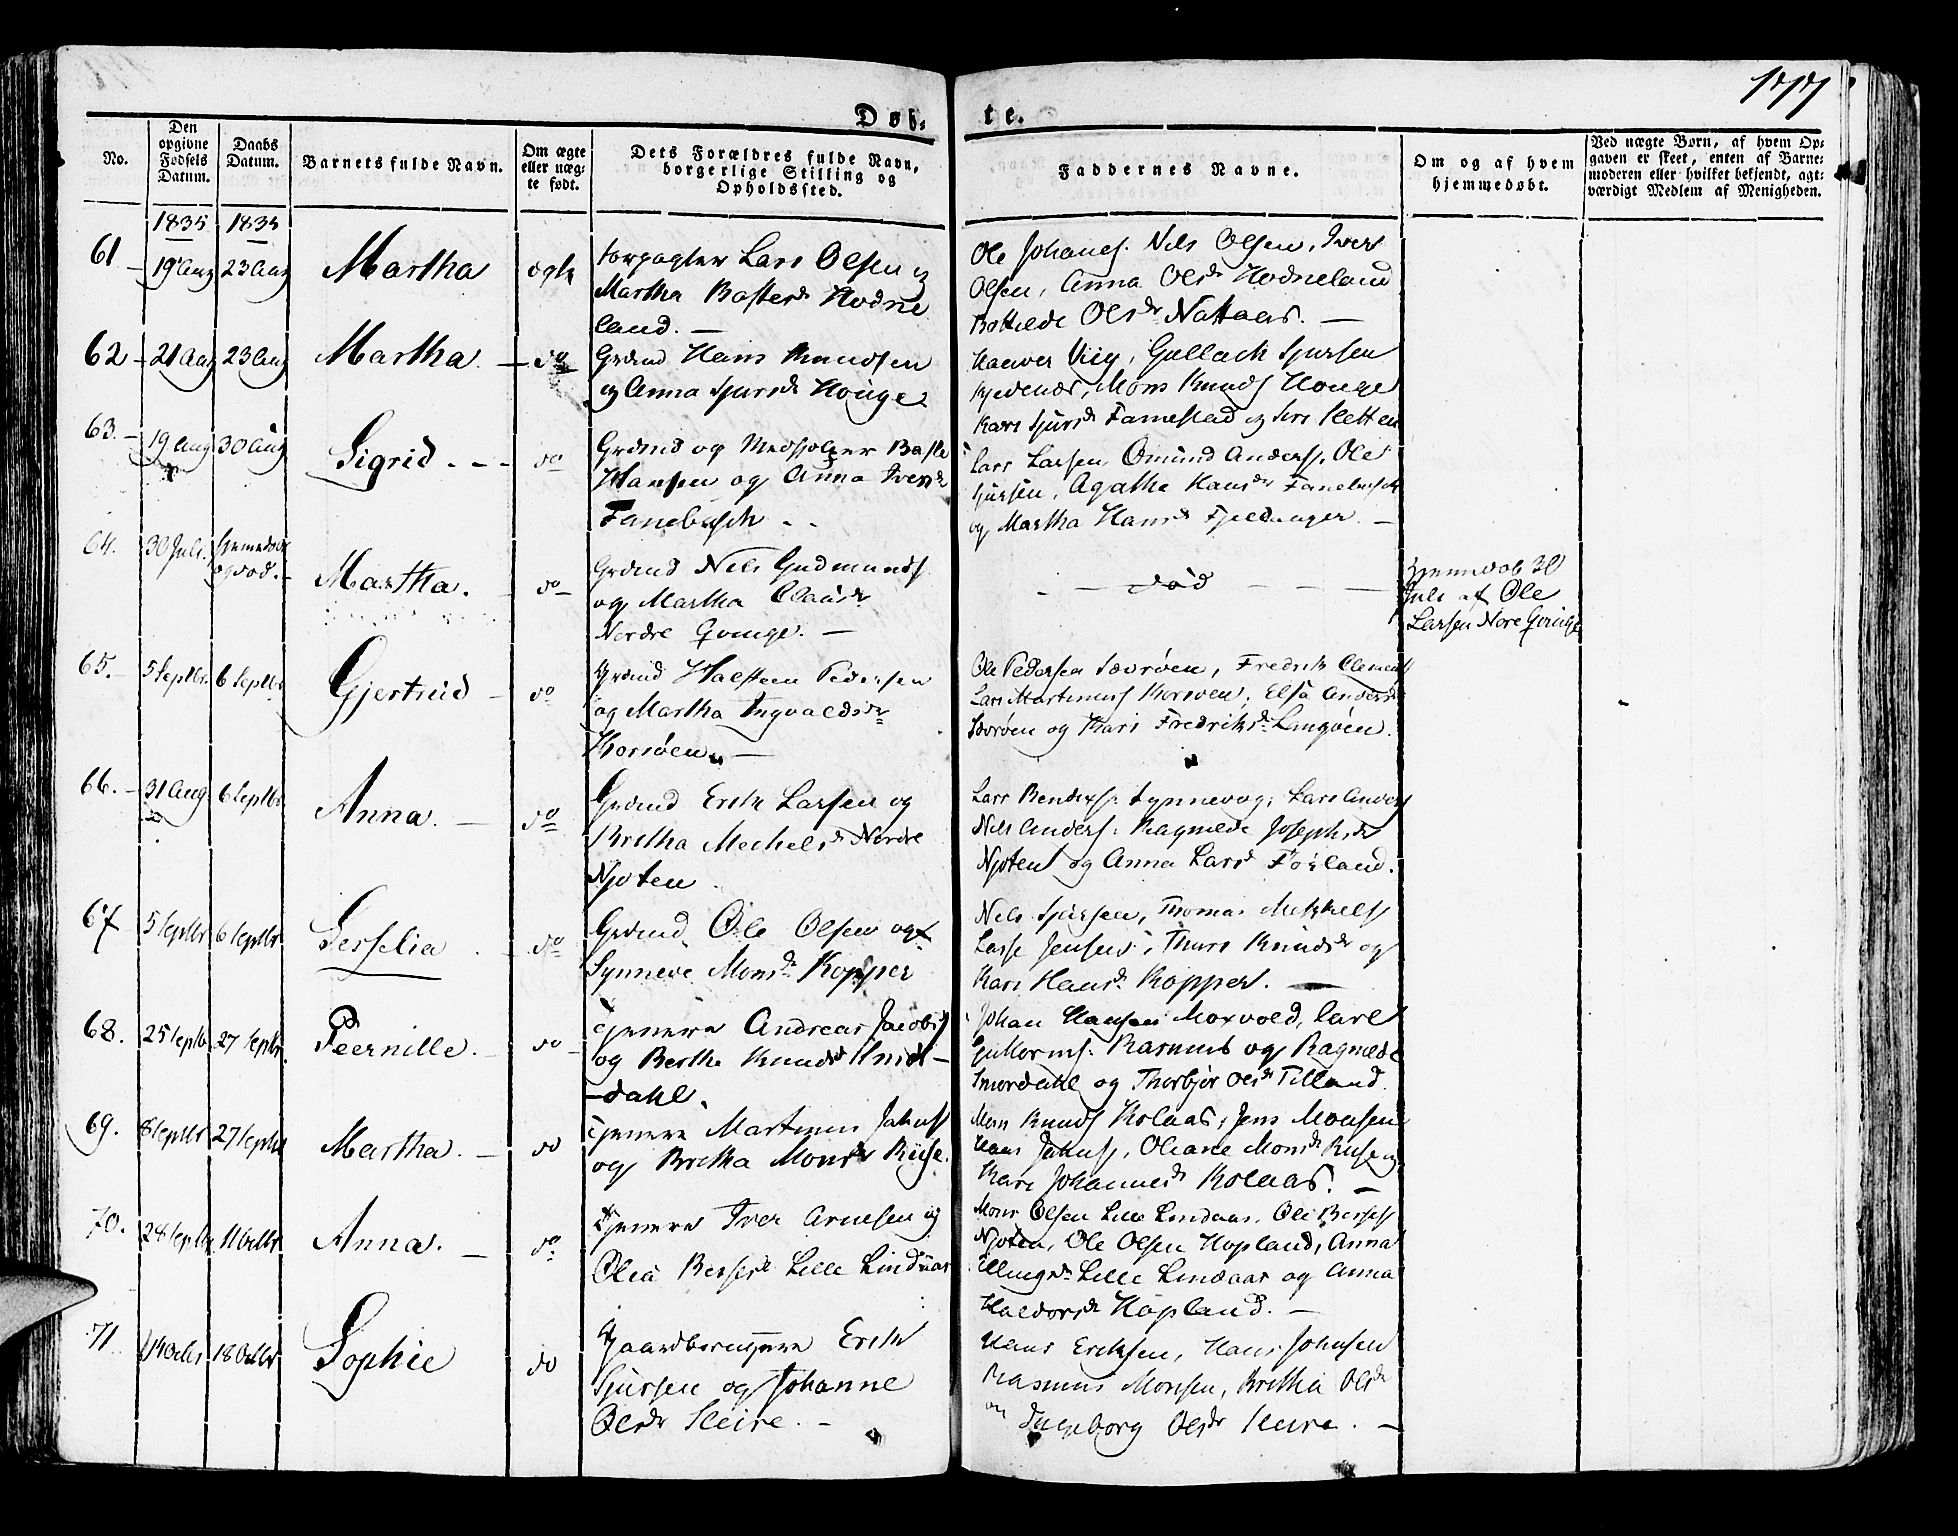 177
Døb-
te.
No.
Den
opgivne
Fødsels
Datum.
Daabs
Datum.
Barnets fulde Navn.
Om ægte
eller uæg-
te født.
Dets Forældres fulde Navn,
borgerlige Stilling og
Opholdssted.
Faddernes Navne.
Om og af hvem
hjemmedøbt.
Ved uægte Børn, af hvem Op-
gaven er skeet, enten af Barne-
moderen eller hvilket bekjendt, agt-
værdigt Medlem af Menigheden.
1835 1835
61 19 Aug 23 Aug Martha ægte
Forpagter Lars Olsen og
Martha Hodne
land. —
Ole Johans. Nils Olsen, Iver
Olsen, Anna Olsdr Hodneland
Olsdr Nattaas. —
62 - 21 Aug 23 Aug Martha. — do
Grdmd Hans Knudsen
og Anna Sjursdr Houge
Viig, Gullach Sjursen
Mons Knuds Houge
Kari Sjursdr Famestad og Siri Sletten
63. - 19 Aug 30 Aug Sigrid. - - do
Grdmd og Medhjelper Baste
Hansen og Anna Iversdr
Fanebusch - -
Lars Larsen, Omund Anders. Ole
Sjursen, Agathe Hansdr Fanebusch
og Martha Hansdr Fjeldanger. —
64. 30 Juli. Hjemmedøbt
og død. - Martha. do -
Grdmd Nils Gudmunds
og Martha Olausdr
Nordre Qvinge. —
- — død — — —
Hjemmedøb 30
Juli af Ole
Larsen Nore Qvinge
65. - 5 Septbr. 6 Septbr Gjertrud - do
Grdmd Halsteen Pedersen
og Martha Ingvaldsdr
Korsøen. —
Ole Pedersen Sævrøen, Fredrik Clements
Lars Martinus Korsøen, Elsa Andersdr
Sævrøen og Kari Fredriksdr Langøen.
66. - 31 Aug 6 Septbr Anna. — do
Grdmd Erik Larsen og
Britha Michelsdr Nordre
Njøten
Lars Lynnevog, Lars Anders
Nils Anders. Ragnilde Josephsdr
Njøten og Anna Larsdr Førland.
67 5 Septbr 6 Septbr Serselia. do
Grdmd. Ole Olsen og
Synneve Monsdr Kopper
Nils Sjursen, Thomas Mikkels
Lasse Jensen, Thuri Knudsdr og
Kari Hansdr Kopper. —
68. 25 Septbr 27 Septbr. Peernille. — do -
Tjenere Andreas Jacobs
og Berthe Knudsdr
-dahl.
Johan Hansen Moxvold, Carl
Rasmus og Ragnilde
og Thorbjør Olsdr Tilland.
69. 8 Septbr 27 Septbr Martha. — do
Tjenere Martinus Jakobs
og Britha Monsdr Riise.
Mons Knuds Kolaas, Jens Monsen
Hans Oliane Monsdr Riise og
Kari Johannesdr Kolaas. —
70. 28 Septbr 11 Octbr Anna. — do
Tjenere Iver Arnesen og
Olia Bersesdr Lille Lindaas
Mons Olsen Lille Lindaas, Ole Berses
Njøten, Ole Olsen Hopland, Anna
Ellingsdr Lille Lindaas og Anna
Haldorsdr Hopland. —
71 14 Octbr 18 Octbr Sophie do
Gaardbrugere Erik
Sjursen og Johanne
Olsdr Sleire. -
Hans Eriksen, Hans Johnsen
Rasmus Monsen, Britha Olsdr
og Ingeborg Olsdr Sleire. —